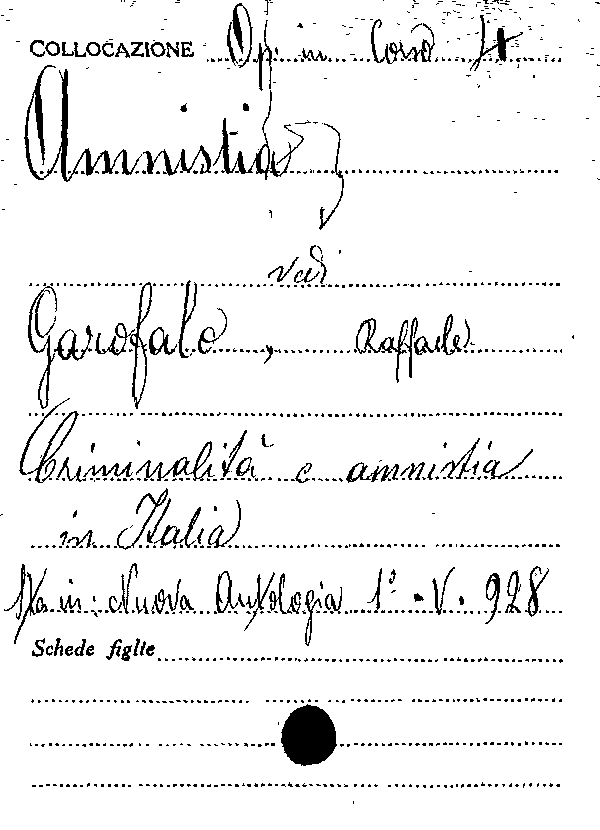 COLLOCAZIONE Op. in Corso
Amnistia
vedi
Garofalo, Raffaele
Criminalità e amnistia
in Italia
Sta in: Nuova Antologia 1° - V. 928
Schede figlie